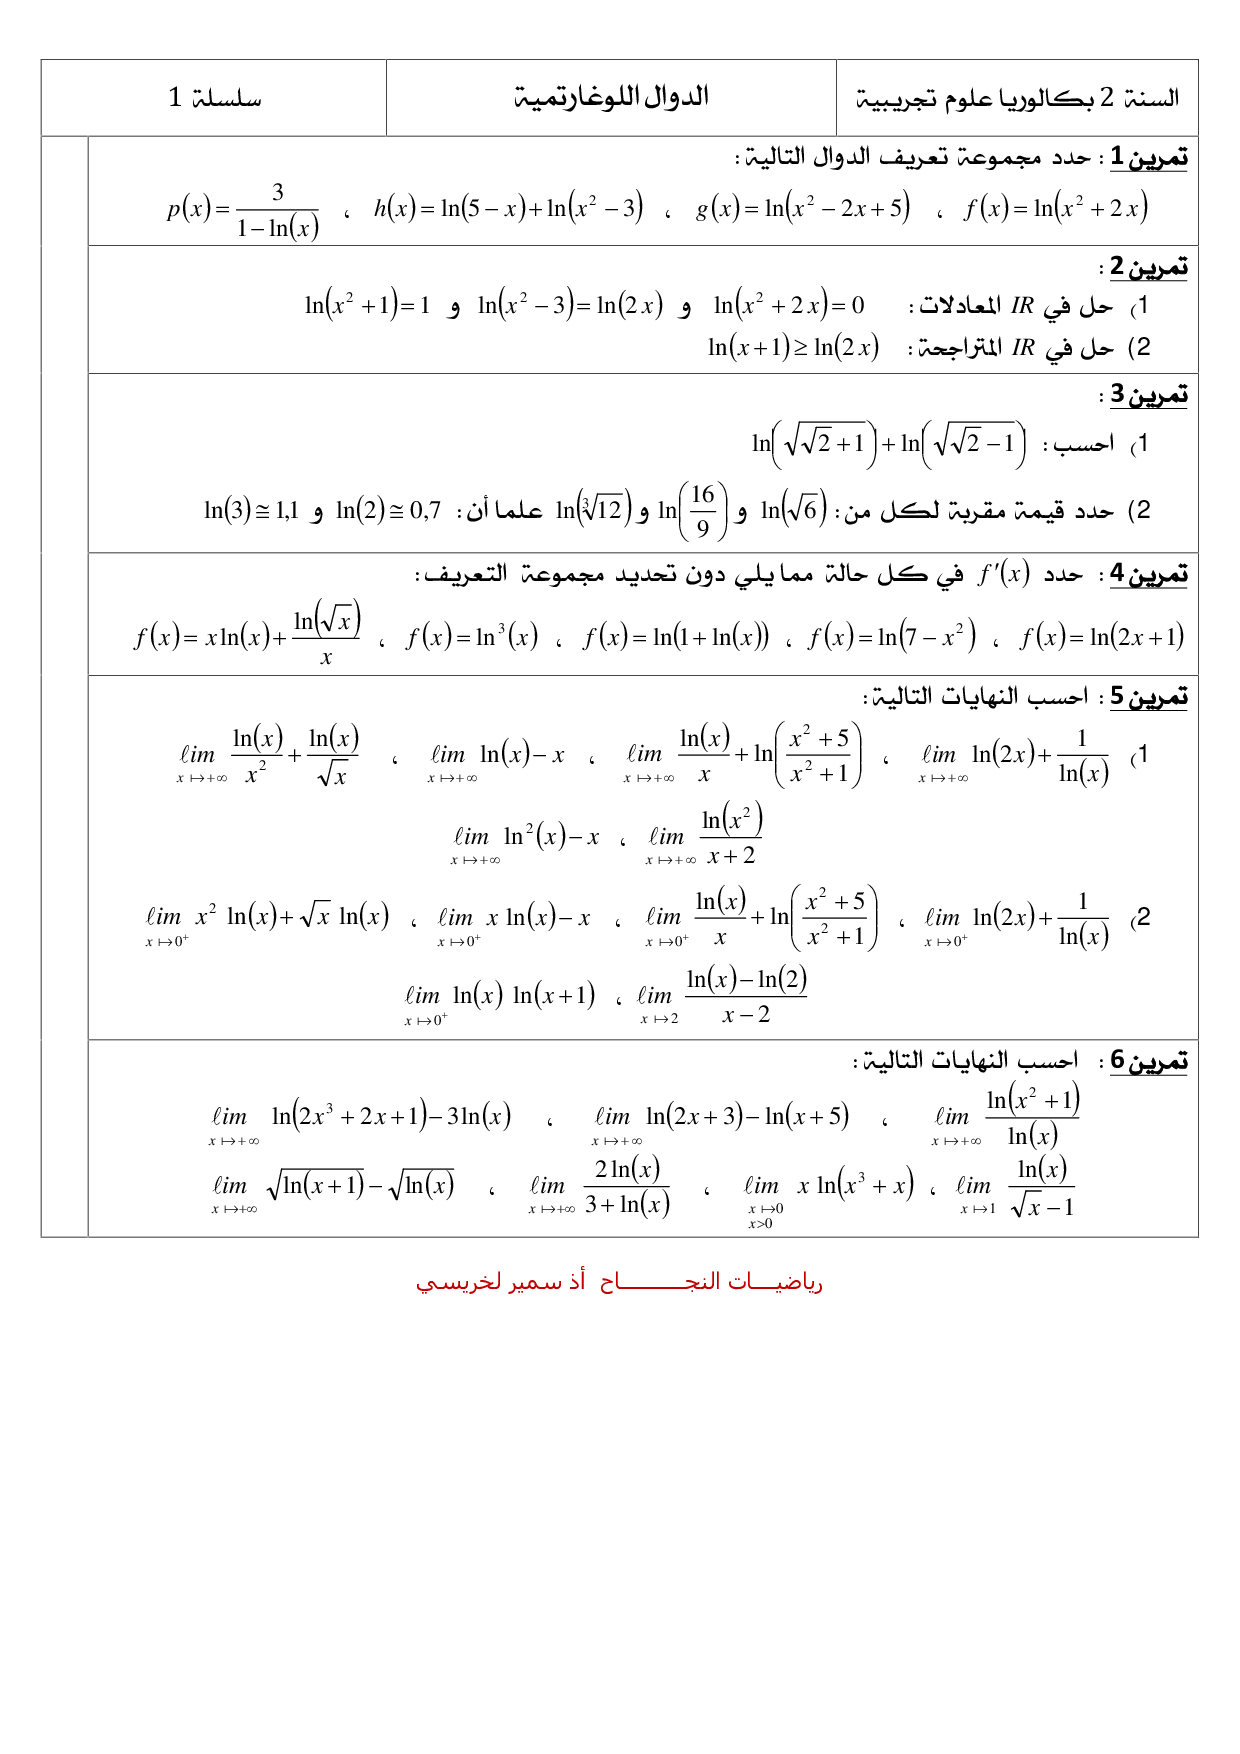 السنة 2 بكالوريا علوم تجريبية	الدوال اللوغارتمية	سلسلة 1
تمرين 1 : حدد مجموعة تعريف الدوال التالية :
f(x) = ln(x² + 2x) ، g(x) = ln(x² − 2x + 5) ، h(x) = ln(5 − x) + ln(x² − 3) ، p(x) = 3/(1 − ln(x))
تمرين 2 :
1) حل في IR المعادلات : ln(x² + 2x) = 0 و ln(x² − 3) = ln(2x) و ln(x² + 1) = 1
2) حل في IR المتراجحة : ln(x + 1) ≥ ln(2x)
تمرين 3 :
1) احسب : ln(√(√2 + 1)) + ln(√(√2 − 1))
2) حدد قيمة مقربة لكل من : ln(√6) و ln(16/9) و ln(∛12) علما أن : ln(2) ≅ 0,7 و ln(3) ≅ 1,1
تمرين 4 : حدد f′(x) في كل حالة مما يلي دون تحديد مجموعة التعريف :
f(x) = ln(2x + 1) ، f(x) = ln(7 − x²) ، f(x) = ln(1 + ln(x)) ، f(x) = ln³(x) ، f(x) = x ln(x) + ln(√x)/x
تمرين 5 : احسب النهايات التالية :
1) ℓim x↦+∞ ln(2x) + 1/ln(x) ، ℓim x↦+∞ ln(x)/x + ln((x² + 5)/(x² + 1)) ، ℓim x↦+∞ ln(x) − x ، ℓim x↦+∞ ln(x)/x² + ln(x)/√x
ℓim x↦+∞ ln(x²)/(x + 2) ، ℓim x↦+∞ ln²(x) − x
2) ℓim x↦0⁺ ln(2x) + 1/ln(x) ، ℓim x↦0⁺ ln(x)/x + ln((x² + 5)/(x² + 1)) ، ℓim x↦0⁺ x ln(x) − x ، ℓim x↦0⁺ x² ln(x) + √x ln(x)
ℓim x↦2 (ln(x) − ln(2))/(x − 2) ، ℓim x↦0⁺ ln(x) ln(x + 1)
تمرين 6 : احسب النهايات التالية :
ℓim x↦+∞ ln(x² + 1)/ln(x) ، ℓim x↦+∞ ln(2x + 3) − ln(x + 5) ، ℓim x↦+∞ ln(2x³ + 2x + 1) − 3ln(x)
ℓim x↦1 ln(x)/(√x − 1) ، ℓim x↦0 x>0 x ln(x³ + x) ، ℓim x↦+∞ 2ln(x)/(3 + ln(x)) ، ℓim x↦+∞ √(ln(x + 1)) − √(ln(x))
رياضيـــات النجـــــــــاح أذ سمير لخريسي